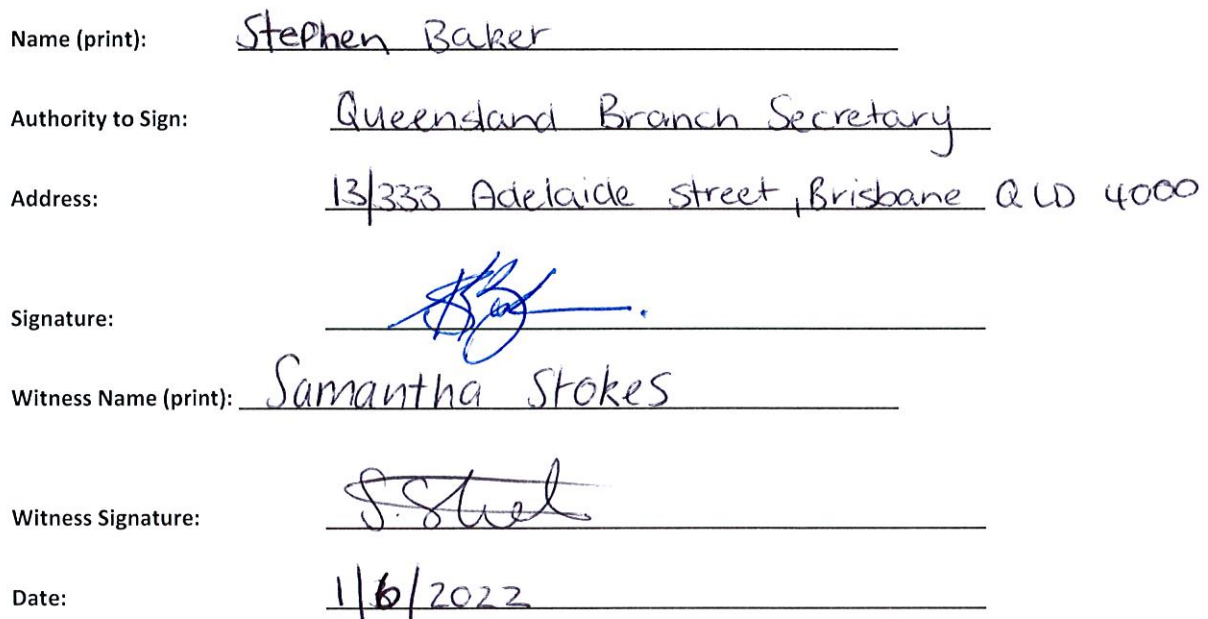 Name (print): Stephen Baker
Authority to Sign: Queensland Branch Secretary
Address: 13/333 Adelaide Street, Brisbane QLD 4000
Signature:
Witness Name (print): Samantha Stokes
Witness Signature:
Date: 1/6/2022